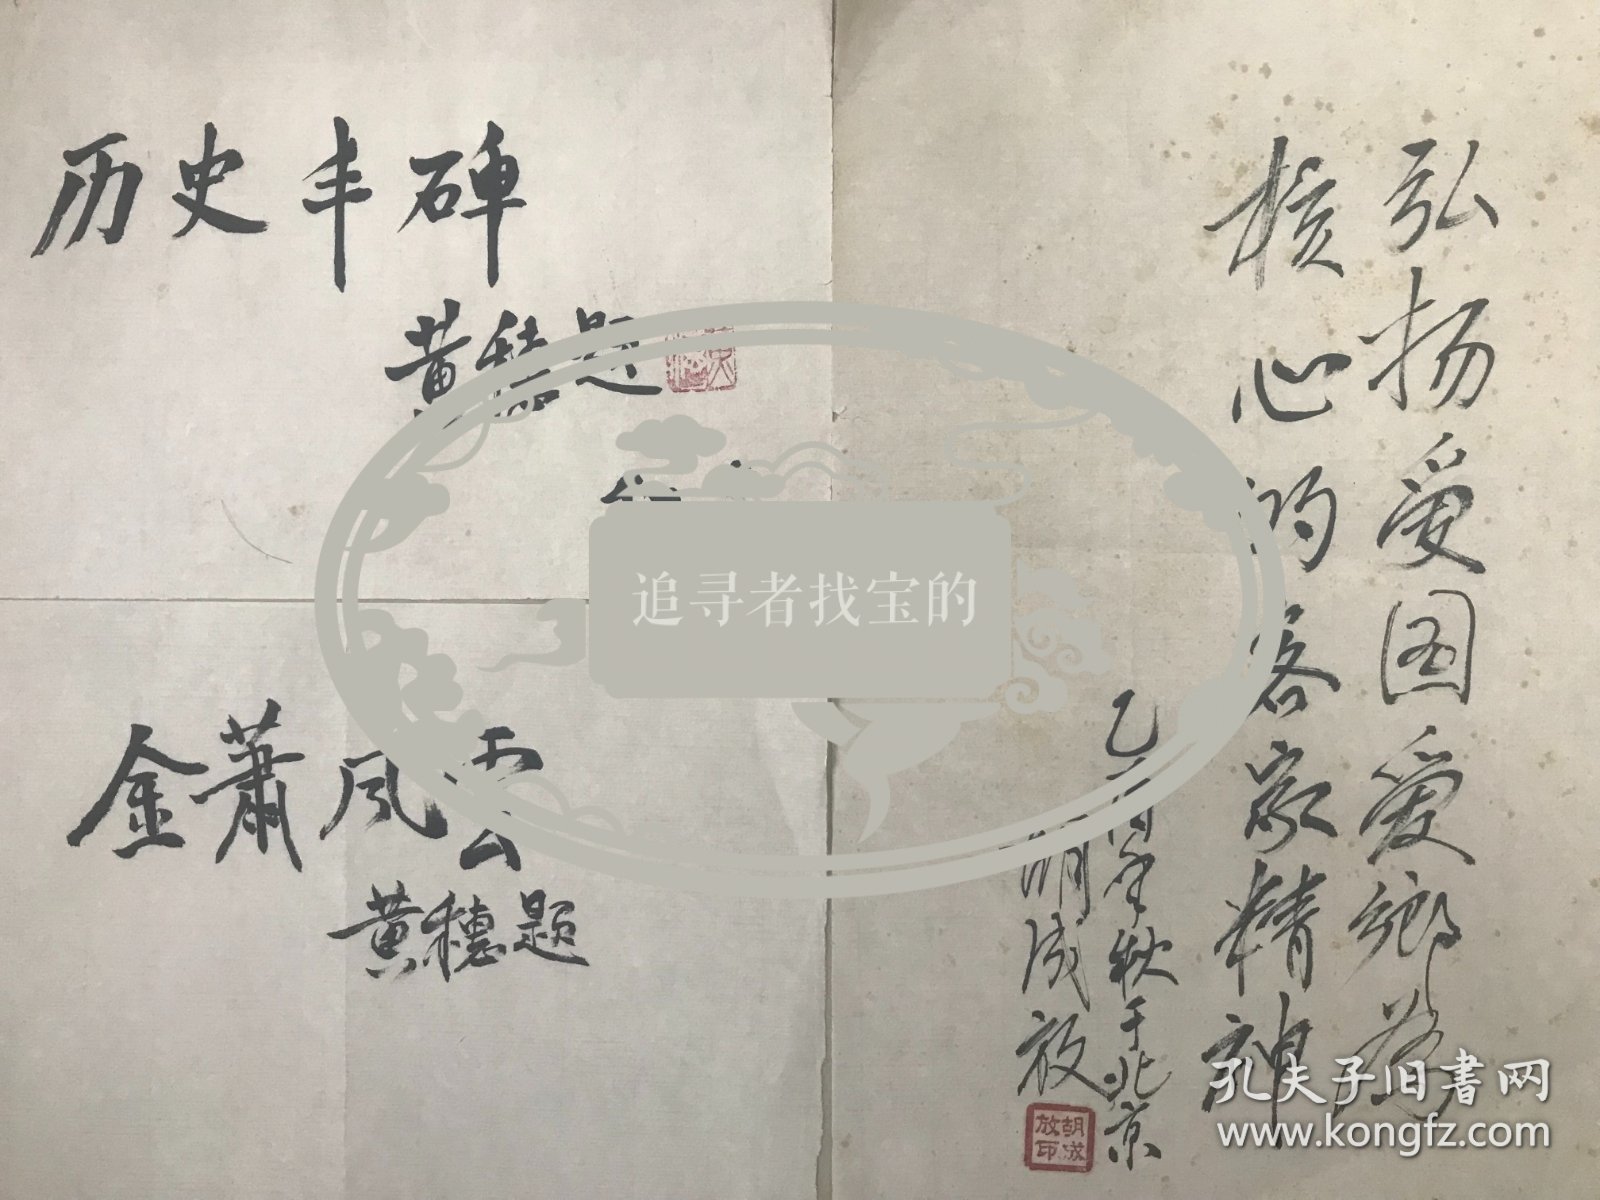 历史丰碑
黄穗题
金萧风雲
黄穗题
弘扬爱国爱鄉为
核心的客家精神
乙酉年秋于北京
胡成放
胡成放印
追寻者找宝的
孔夫子旧書网
www.kongfz.com